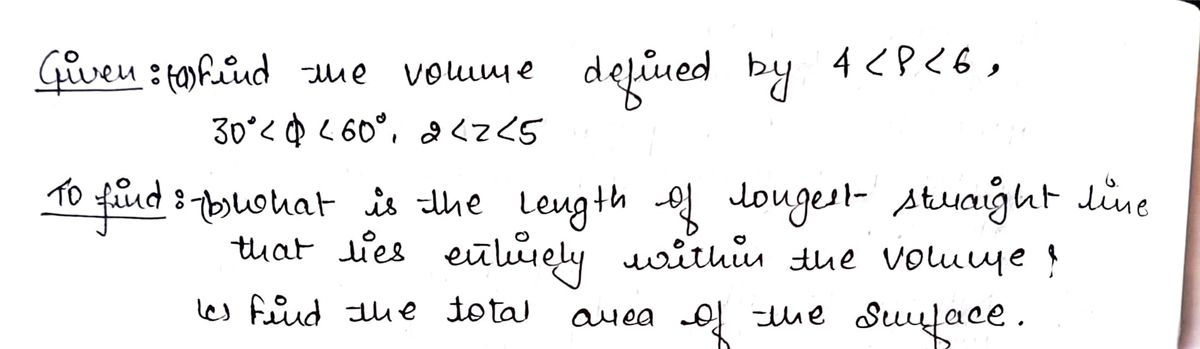 Given : (a) find the volume defined by 4<ρ<6,
30°<ϕ<60°, 2<z<5
To find :- (b) what is the length of longest straight line
that lies entirely within the volume ;
(c) find the total area of the surface.